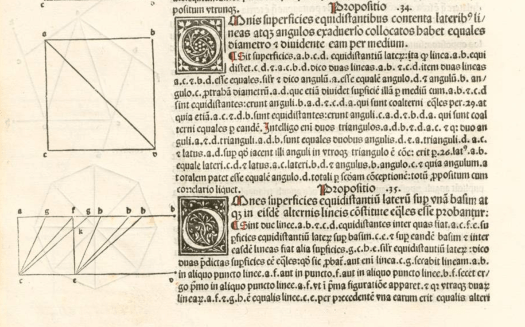 positum vtrunq3.
Propositio .34.
OMnis superficies equidistantibus contenta laterib9 li
neas atq3 angulos exaduerso collocatos habet equales
diametro ⁊ diuidente eam per medium.
¶Sit superficies.a.b.c.d. equidistantiũ later᷒:ita q̃ linea.a.b.equi
distet.c.d.⁊.a.c.b.d. dico duas lineas.a.b.⁊.c.d. item duas lineas
.a.c.⁊.b.d. esse equales. sil'r ⁊ dico angulũ.a. esse equalẽ angulo.d.⁊ angulũ.b. an/
gulo.c. protrabã diametrũ.a.d. que etiã diuidet supficiẽ illã p̱ mediũ cum.a.b.⁊.c.d
sint equidistantes: erunt anguli.b.a.d.⁊.c.d.a. qui sunt coalterni eq̃les per.29. at
quia etiã.a.c.⁊.d.b. sunt equidistantes: erunt anguli.c.a.d.⁊.b.d.a. qui sunt coal
terni equales p̱ eandẽ. Intelligo eni duos triangulos.a.d.b.⁊.d.a.c. ⁊ q2 duo an
guli.a.⁊.d. trianguli.a.d.b. sunt equales duobus angulis.d.⁊.a. trianguli.d.a.c.
⁊ latus.a.d. sup qð iacent illi anguli in vtroq3 triangulo ẽ cõe: erit p̱.26. lat9.a.b.
equale lateri.c.d.⁊ latus.a.c. lateri.b.d.⁊ angulus.b. angulo.c.⁊ quia angulum.a
totalem patet esse equalẽ angulo.d. totali p̱ scðam cõceptionẽ: totũ ppositum cum
correlario liquet.
Propositio .35.
OMnes superficies equidistantiũ laterũ sup vnã basim at
q3 in eisdẽ alternis lineis cõstitute eq̃les esse probantur:
¶Sint due linee.a.b.⁊.c.d. equidistantes inter quas fiat.a.c.f.e. su
p̱ficies equidistantiũ later᷒ sup basim.c.e.⁊ sup eandẽ basim ⁊ inter
easdẽ lineas fiat alia supficies.g.c.b.e. sil'r equidistantiũ later᷒: dico
duas p̃dictas supficies eẽ eq̃les: qð sic pbat᷒. aut eni linea.c.g. secabit lineam.a.b.
in aliquo puncto linee.a.f. aut in puncto.f. aut in aliquo puncto linee.b.f. secet er/
go pmo in aliquo pũcto linee.a.f. vt i pma figuratiõe apparet. ⁊ q2 vtraq3 duar᷒
linear᷒.a.f.⁊.g.h. ẽ equalis linee.c.e. per precedentẽ vna earum erit equalis alteri
a
b
c
d
a
f
g
b
h
b
b
k
c
e